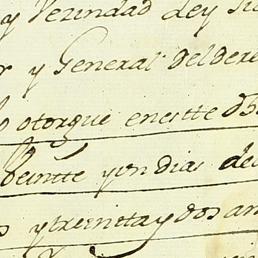 y Vezindad dey
r y General del dere
otorgue enestte
Veintte yun dias de
s ytreinttaydos an